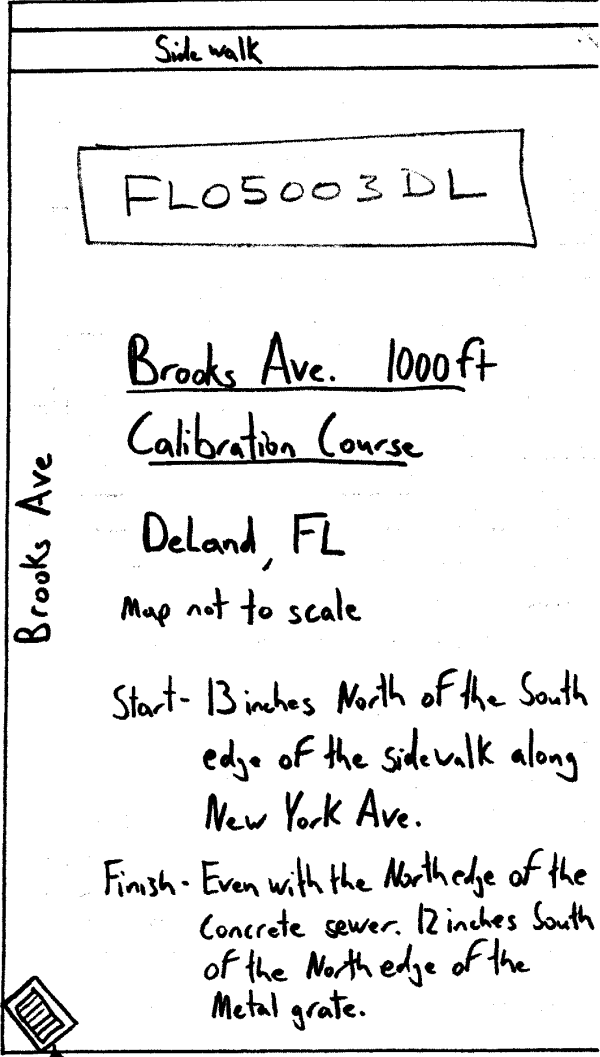 Sidewalk
FL05003DL
Brooks Ave. 1000ft
Calibration Course
DeLand, FL
Map not to scale
Brooks Ave
Start - 13 inches North of the South
edge of the sidewalk along
New York Ave.
Finish - Even with the North edge of the
Concrete sewer. 12 inches South
of the North edge of the
Metal grate.